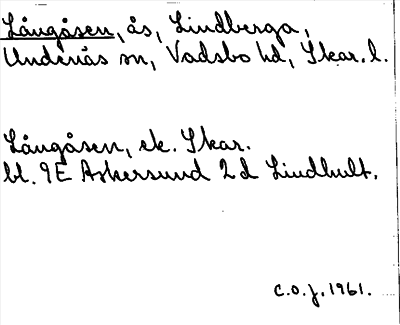 Långåsen, ås, Lindberga,
Undenäs sn, Vadsbo hd, Skar. l.
Långåsen, ek. Skar.
bl. 9E Askersund 2d Lindhult.
C.O.J. 1961.